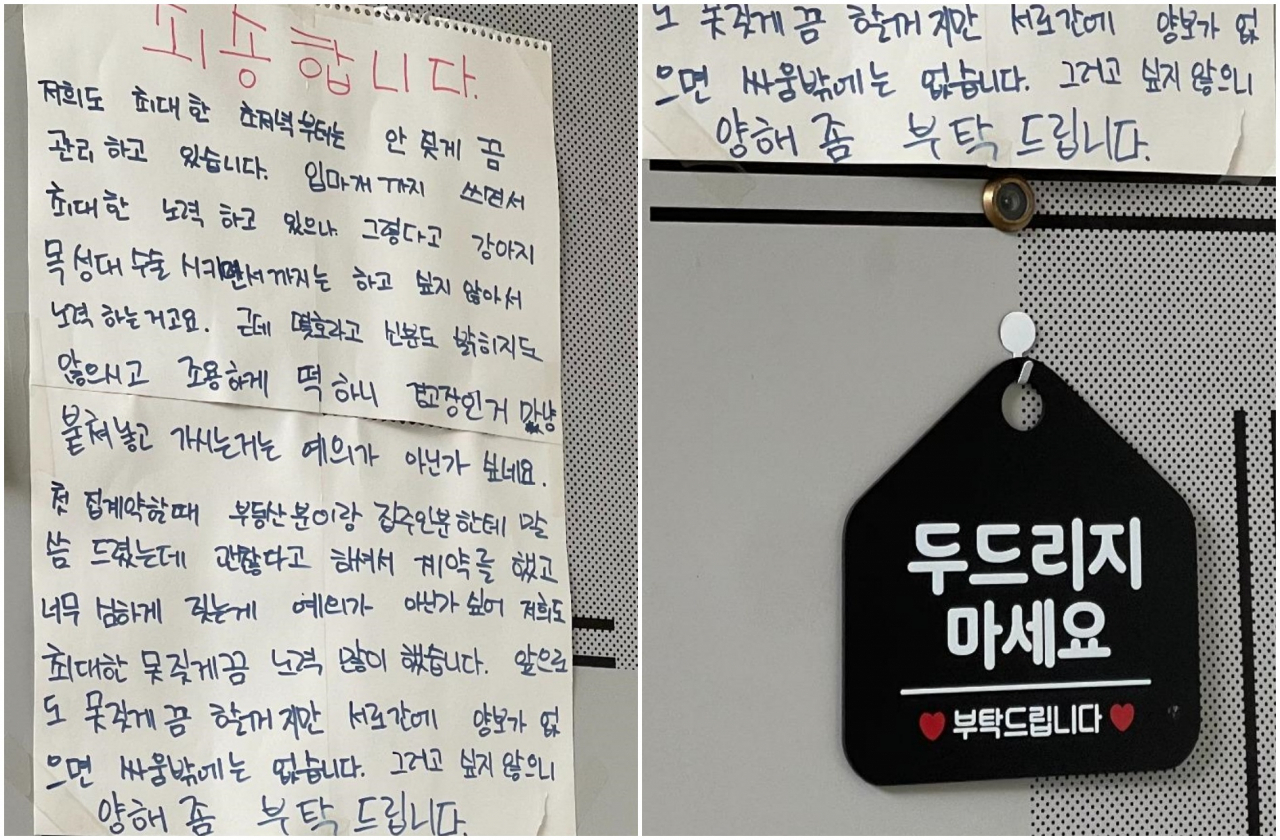 죄송합니다.
저희도 최대한 초저녁부터는 안 짖게 끔
관리 하고 있습니다. 입마개 까지 쓰면서
최대한 노력 하고 있으나 그렇다고 강아지
목 성대 수술 시키면서 까지는 하고 싶지 않아서
노력 하는거고요. 근데 몇호라고 신분도 밝히지도
않으시고 조용하게 떡 하니 경고장인거 마냥
붙쳐놓고 가시는거는 예의가 아닌가 싶네요.
첫 집계약할때 부동산분이랑 집주인분한테 말
씀 드렸는데 괜찮다고 하셔서 계약을 했고
너무 심하게 짖는게 예의가 아닌가 싶어 저희도
최대한 못짖게끔 노력 많이 했습니다. 앞으로
도 못짖게 끔 할꺼 지만 서로간에 양보가 없
으면 싸움밖에는 없습니다. 그러고 싶지 않으니
양해 좀 부탁 드립니다.
도 못짖게 끔 할꺼 지만 서로간에 양보가 없
으면 싸움밖에는 없습니다. 그러고 싶지 않으니
양해 좀 부탁 드립니다.
두드리지
마세요
부탁드립니다